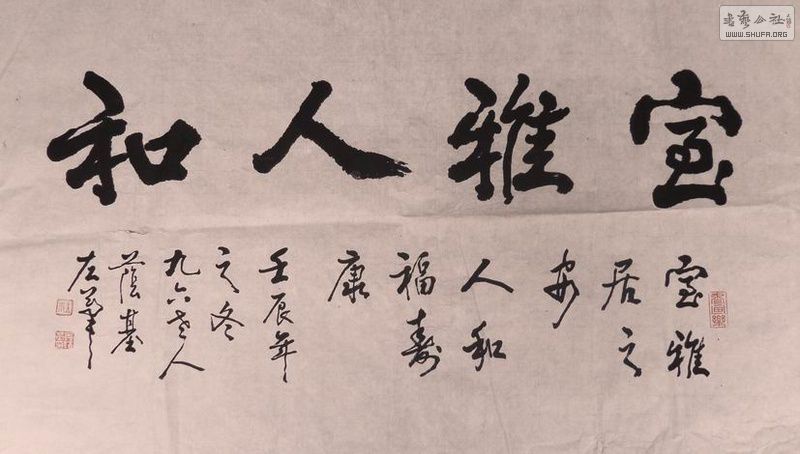 室雅人和
室雅
居之
安
人和
福寿
康
壬辰年
之冬
九六老人
蔭基
左笔
书艺公社
WWW.SHUFA.ORG